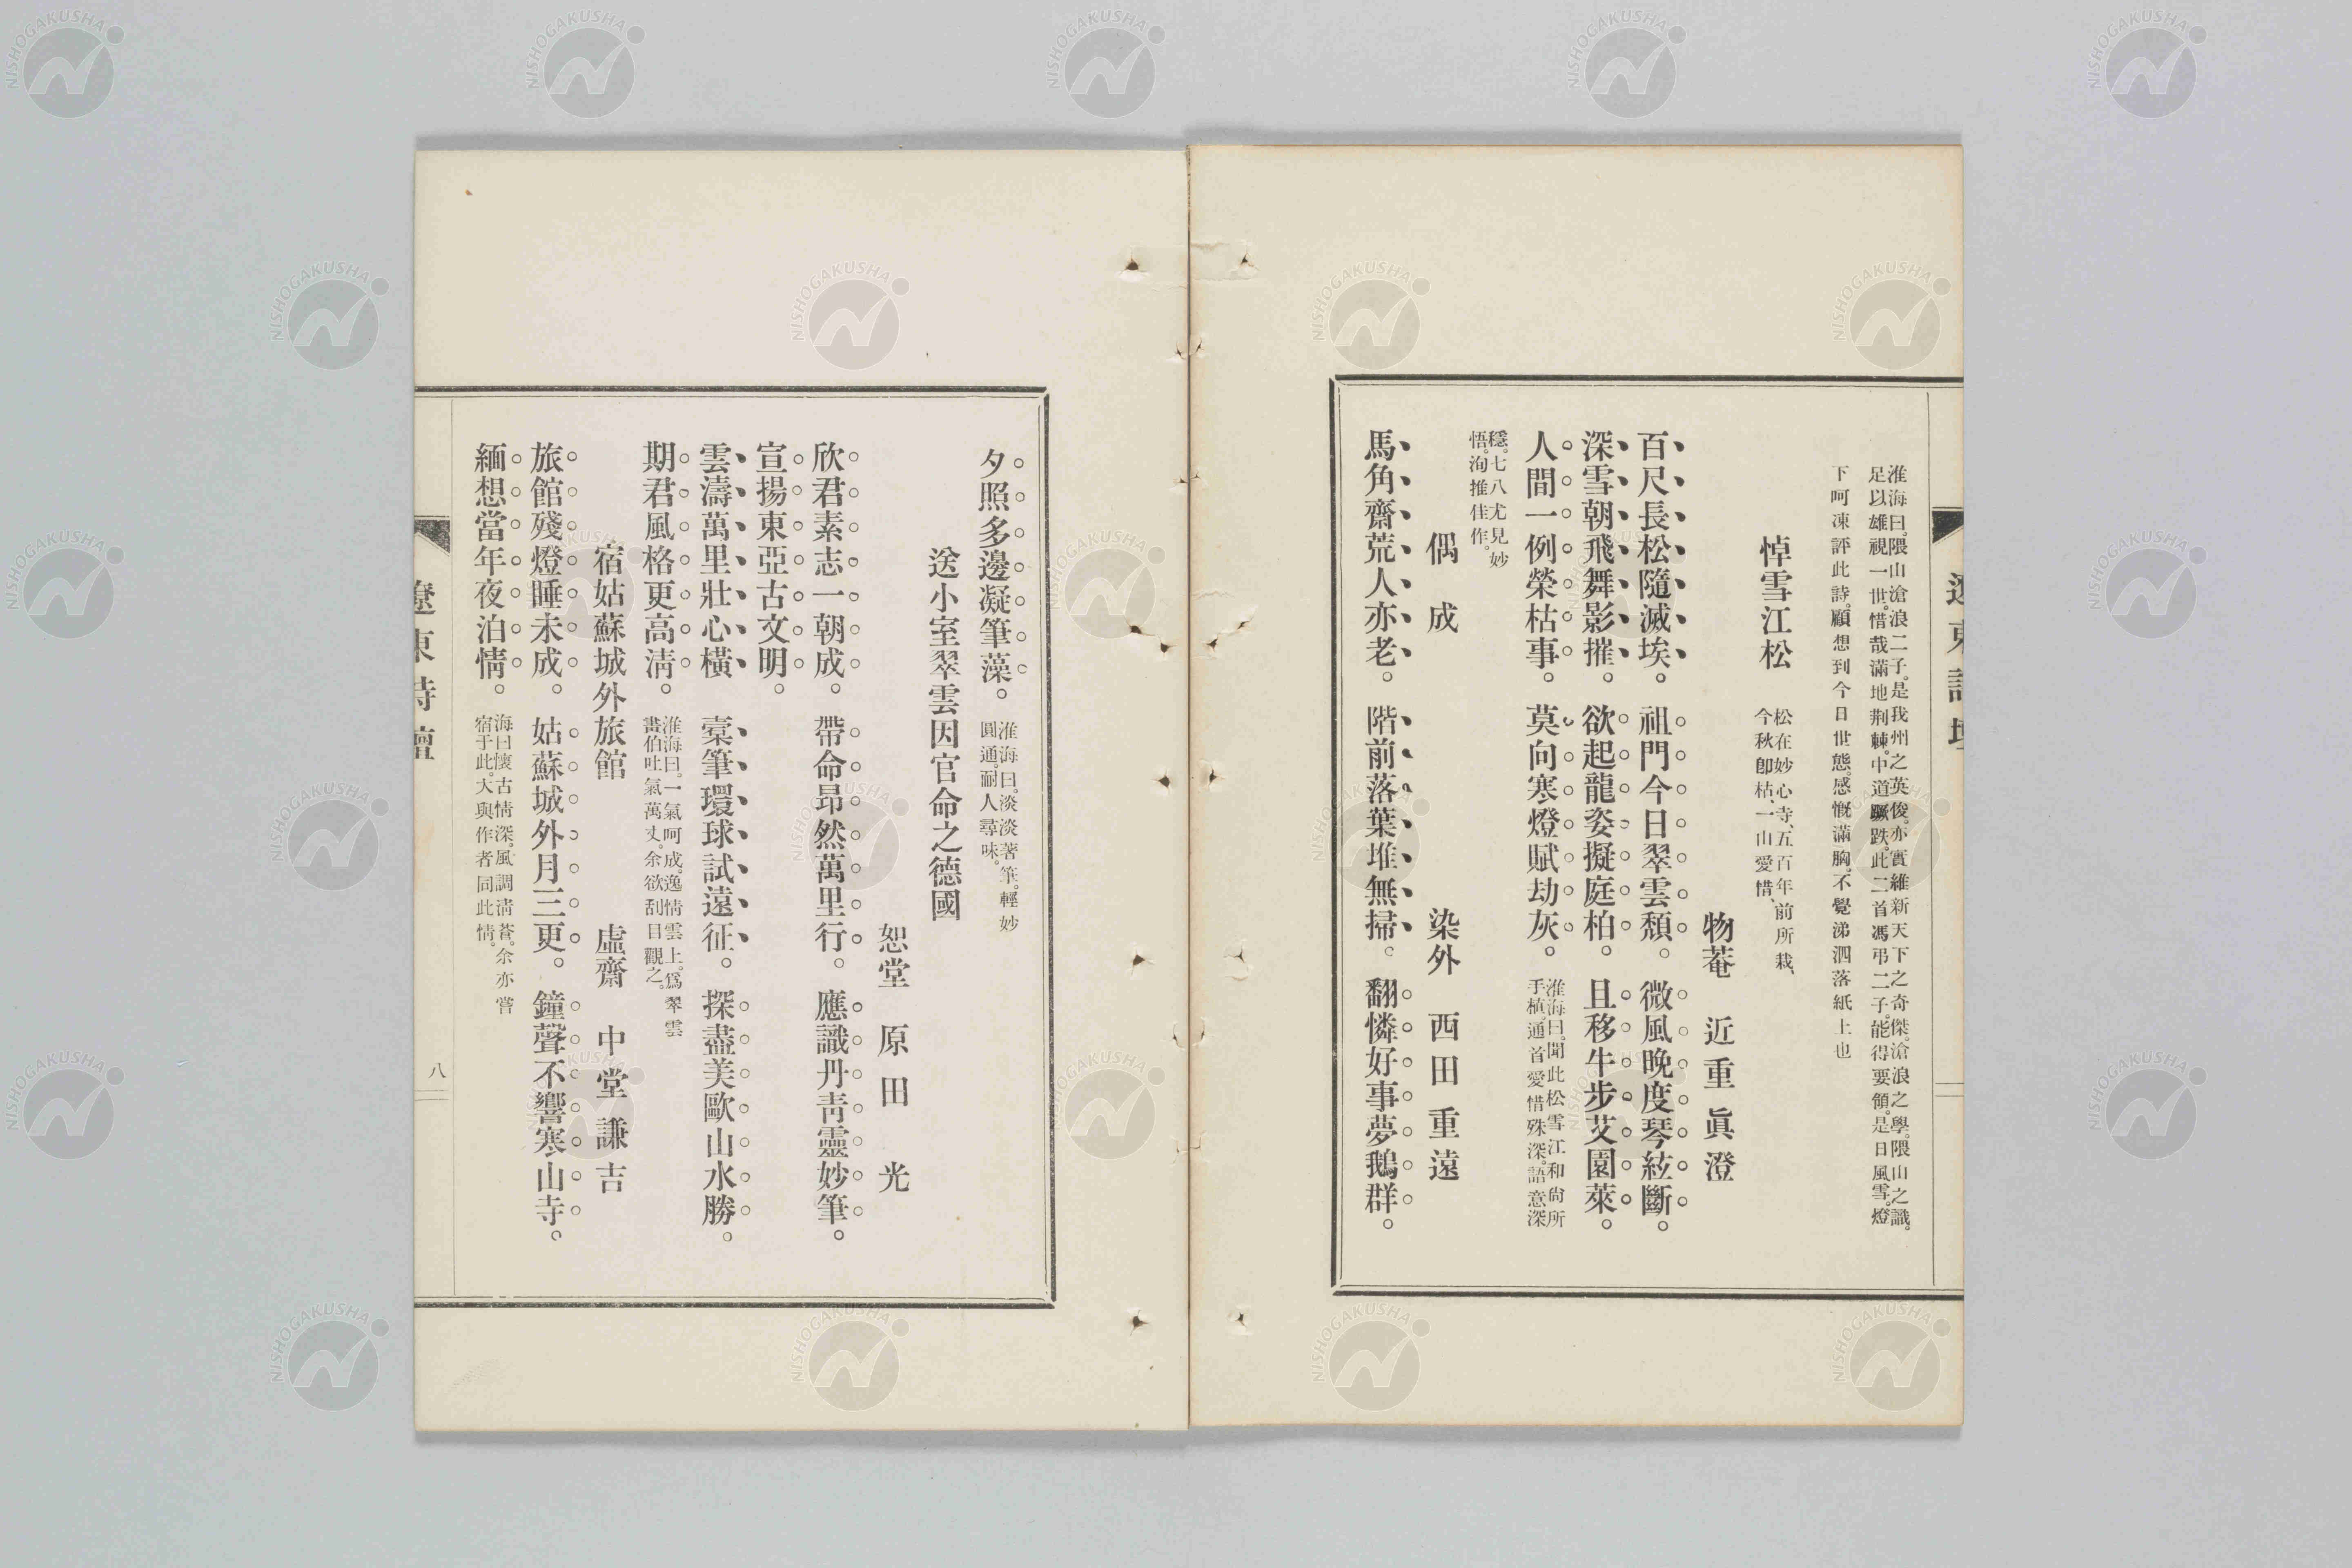 淮海曰。隈山滄浪二子。是我州之英俊。亦實維新天下之奇傑。滄浪之學。隈山之識。
足以雄視一世。惜哉滿地荆棘。中道蹶跌。此二首馮弔二子。能得要領。是日風雪。燈
下呵凍評此詩。顧想到今日世態。感慨滿胸。不覺涕泗落紙上也
悼雪江松
松在妙心寺、五百年前所栽、
今秋卽枯、一山愛惜、
物菴 近重眞澄
百尺長松隨滅埃。祖門今日翠雲頹。微風晚度琴絃斷。
深雪朝飛舞影摧。欲起龍姿擬庭柏。且移牛步艾園萊。
人間一例榮枯事。莫向寒燈賦劫灰。
淮海曰。聞此松雪江和尙所
手植。通首愛惜殊深。語意深
穩。七八尤見妙
悟。洵推佳作。
偶成
染外 西田重遠
馬角齋荒人亦老。階前落葉堆無掃。翻憐好事夢鵝群。
遼東詩壇
夕照多邊凝筆藻。
淮海曰。淡淡著筆。輕妙
圓通。耐人尋味。
送小室翠雲因官命之德國
恕堂 原田光
欣君素志一朝成。帶命昂然萬里行。應識丹靑靈妙筆。
宣揚東亞古文明。
雲濤萬里壯心橫 橐筆環球試遠征。探盡美歐山水勝。
期君風格更高淸。
淮海曰。一氣呵成。逸情雲上。爲翠雲
畫伯吐氣萬丈。余欲刮目觀之。
宿姑蘇城外旅館
虛齋 中堂謙吉
旅館殘燈睡未成。姑蘇城外月三更。鐘聲不響寒山寺。
緬想當年夜泊情。
海曰懷古情深。風調淸蒼。余亦嘗
宿于此。大與作者同此情。
遼東詩壇
八
NISHOGAKUSHA